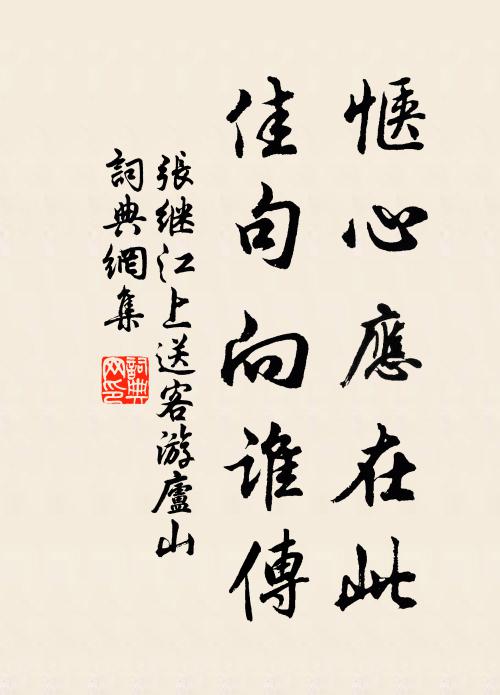 惬心應在此
佳句向誰傳
張继江上送客游廬山
詞典網集
詞典網印